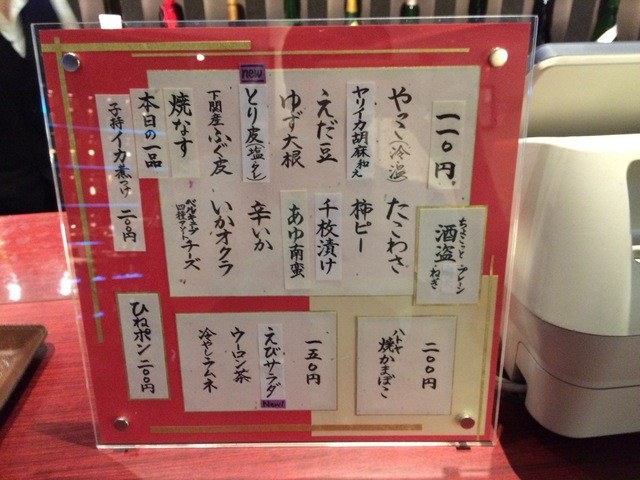 一一〇円
やっこ(冷・温)
ヤリイカ胡麻和え
えだ豆
ゆず大根
new
とり皮(塩・タレ)
下関産ふぐ皮
焼なす
本日の一品
子持イカ煮つけ 二〇〇円
酒盗
プレーン
ねぎ
たこわさ
柿ピー
千枚漬け
あゆ南蛮
辛いか
いかオクラ
ベルキューブ
四種アソートチーズ
二〇〇円
ハトヤ
焼かまぼこ
一五〇円
えびサラダ
New!
ウーロン茶
冷やしラムネ
ひねポン 二〇〇円